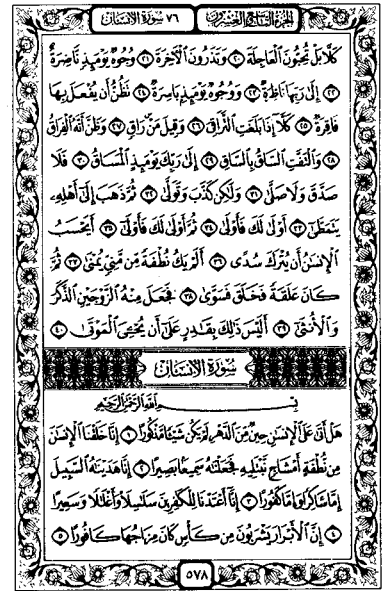 الجزء التاسع والعشرون ٧٦ سورة الإنسان
كَلَّا بَلْ تُحِبُّونَ الْعَاجِلَةَ ٢٠ وَتَذَرُونَ الْآخِرَةَ ٢١ وُجُوهٌ يَوْمَئِذٍ نَّاضِرَةٌ
٢٢ إِلَىٰ رَبِّهَا نَاظِرَةٌ ٢٣ وَوُجُوهٌ يَوْمَئِذٍ بَاسِرَةٌ ٢٤ تَظُنُّ أَن يُفْعَلَ بِهَا
فَاقِرَةٌ ٢٥ كَلَّا إِذَا بَلَغَتِ التَّرَاقِيَ ٢٦ وَقِيلَ مَنْ رَاقٍ ٢٧ وَظَنَّ أَنَّهُ الْفِرَاقُ
٢٨ وَالْتَفَّتِ السَّاقُ بِالسَّاقِ ٢٩ إِلَىٰ رَبِّكَ يَوْمَئِذٍ الْمَسَاقُ ٣٠ فَلَا
صَدَّقَ وَلَا صَلَّىٰ ٣١ وَلَٰكِن كَذَّبَ وَتَوَلَّىٰ ٣٢ ثُمَّ ذَهَبَ إِلَىٰ أَهْلِهِ
يَتَمَطَّىٰ ٣٣ أَوْلَىٰ لَكَ فَأَوْلَىٰ ٣٤ ثُمَّ أَوْلَىٰ لَكَ فَأَوْلَىٰ ٣٥ أَيَحْسَبُ
الْإِنسَانُ أَن يُتْرَكَ سُدًى ٣٦ أَلَمْ يَكُ نُطْفَةً مِّن مَّنِيٍّ يُمْنَىٰ ٣٧ ثُمَّ
كَانَ عَلَقَةً فَخَلَقَ فَسَوَّىٰ ٣٨ فَجَعَلَ مِنْهُ الزَّوْجَيْنِ الذَّكَرَ
وَالْأُنثَىٰ ٣٩ أَلَيْسَ ذَٰلِكَ بِقَادِرٍ عَلَىٰ أَن يُحْيِيَ الْمَوْتَىٰ ٤٠
سورة الإنسان
بسم الله الرحمن الرحيم
هَلْ أَتَىٰ عَلَى الْإِنسَانِ حِينٌ مِّنَ الدَّهْرِ لَمْ يَكُن شَيْئًا مَّذْكُورًا ١ إِنَّا خَلَقْنَا الْإِنسَانَ
مِن نُّطْفَةٍ أَمْشَاجٍ نَّبْتَلِيهِ فَجَعَلْنَاهُ سَمِيعًا بَصِيرًا ٢ إِنَّا هَدَيْنَاهُ السَّبِيلَ
إِمَّا شَاكِرًا وَإِمَّا كَفُورًا ٣ إِنَّا أَعْتَدْنَا لِلْكَافِرِينَ سَلَاسِلَا وَأَغْلَالًا وَسَعِيرًا
٤ إِنَّ الْأَبْرَارَ يَشْرَبُونَ مِن كَأْسٍ كَانَ مِزَاجُهَا كَافُورًا ٥
٥٧٨